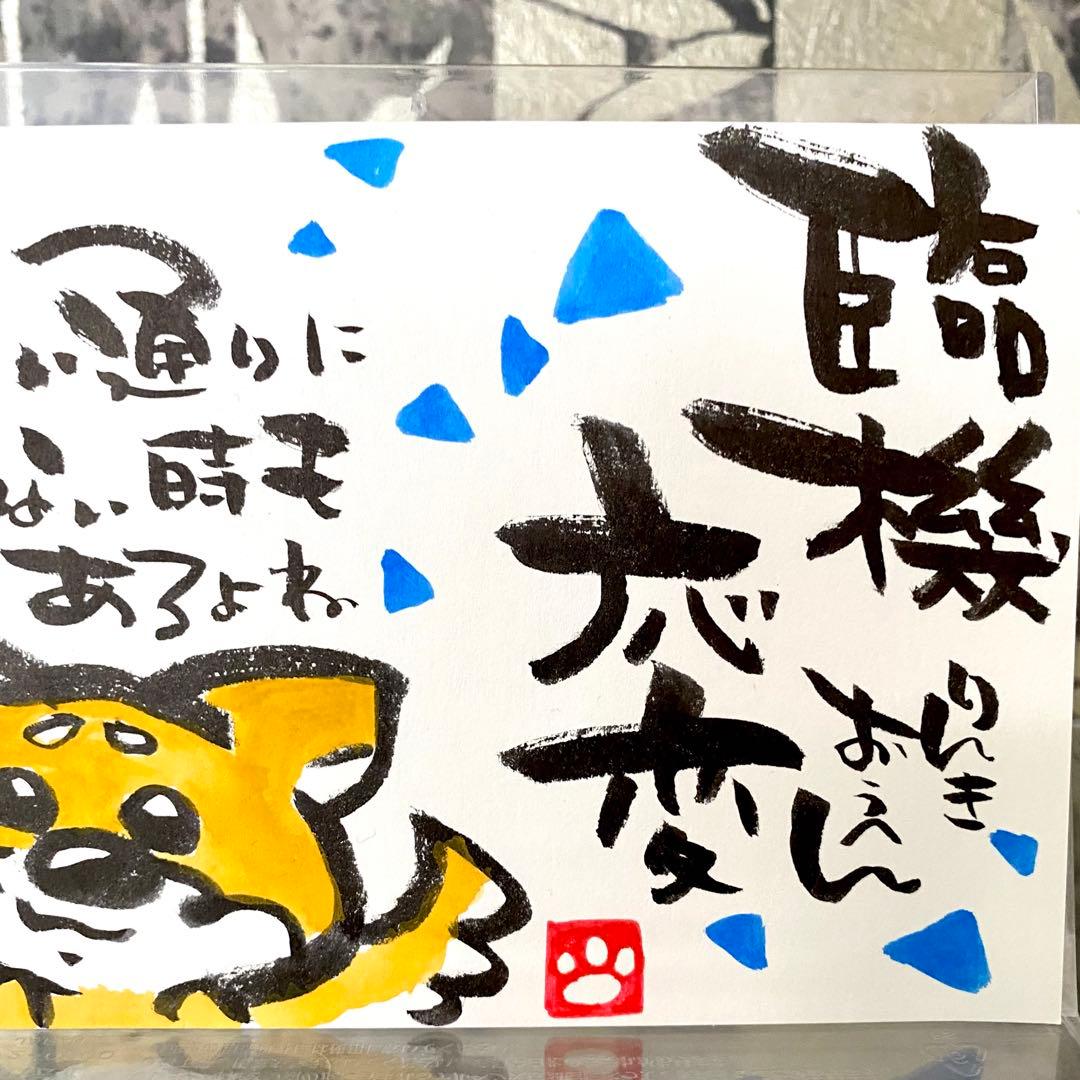 臨機
応変
りんき
おうへん
い通りに
ない時も
あるよね